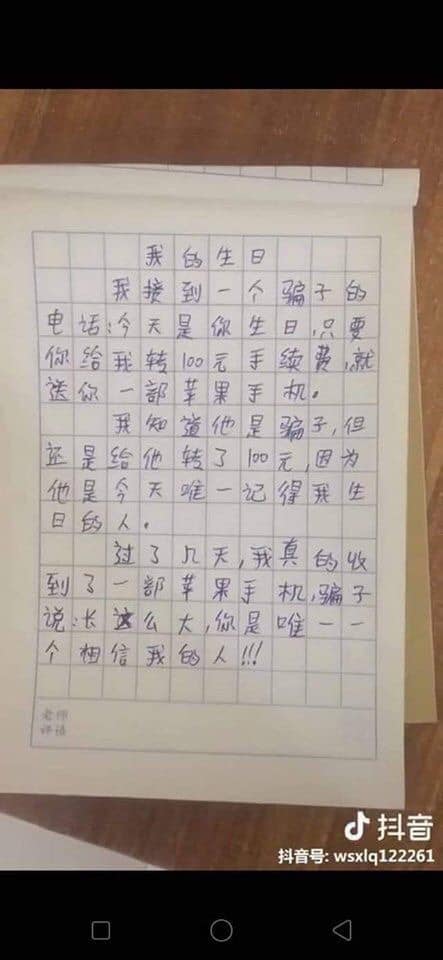 我的生日
我接到一个骗子的
电话:今天是你生日,只要
你给我转100元手续费,就
送你一部苹果手机。
我知道他是骗子,但
还是给他转了100元,因为
他是今天唯一记得我生
日的人。
过了几天,我真的收
到了一部苹果手机,骗子
说:长这么大,你是唯一一
个相信我的人!!!
老师
评语
抖音
抖音号: wsxlq122261